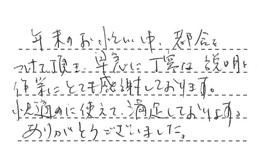 年末のお忙しい中、都合を
つけて頂き、早急に丁寧な説明と
作業にとても感謝しております。
快適に使えて満足しております。
ありがとうございました。